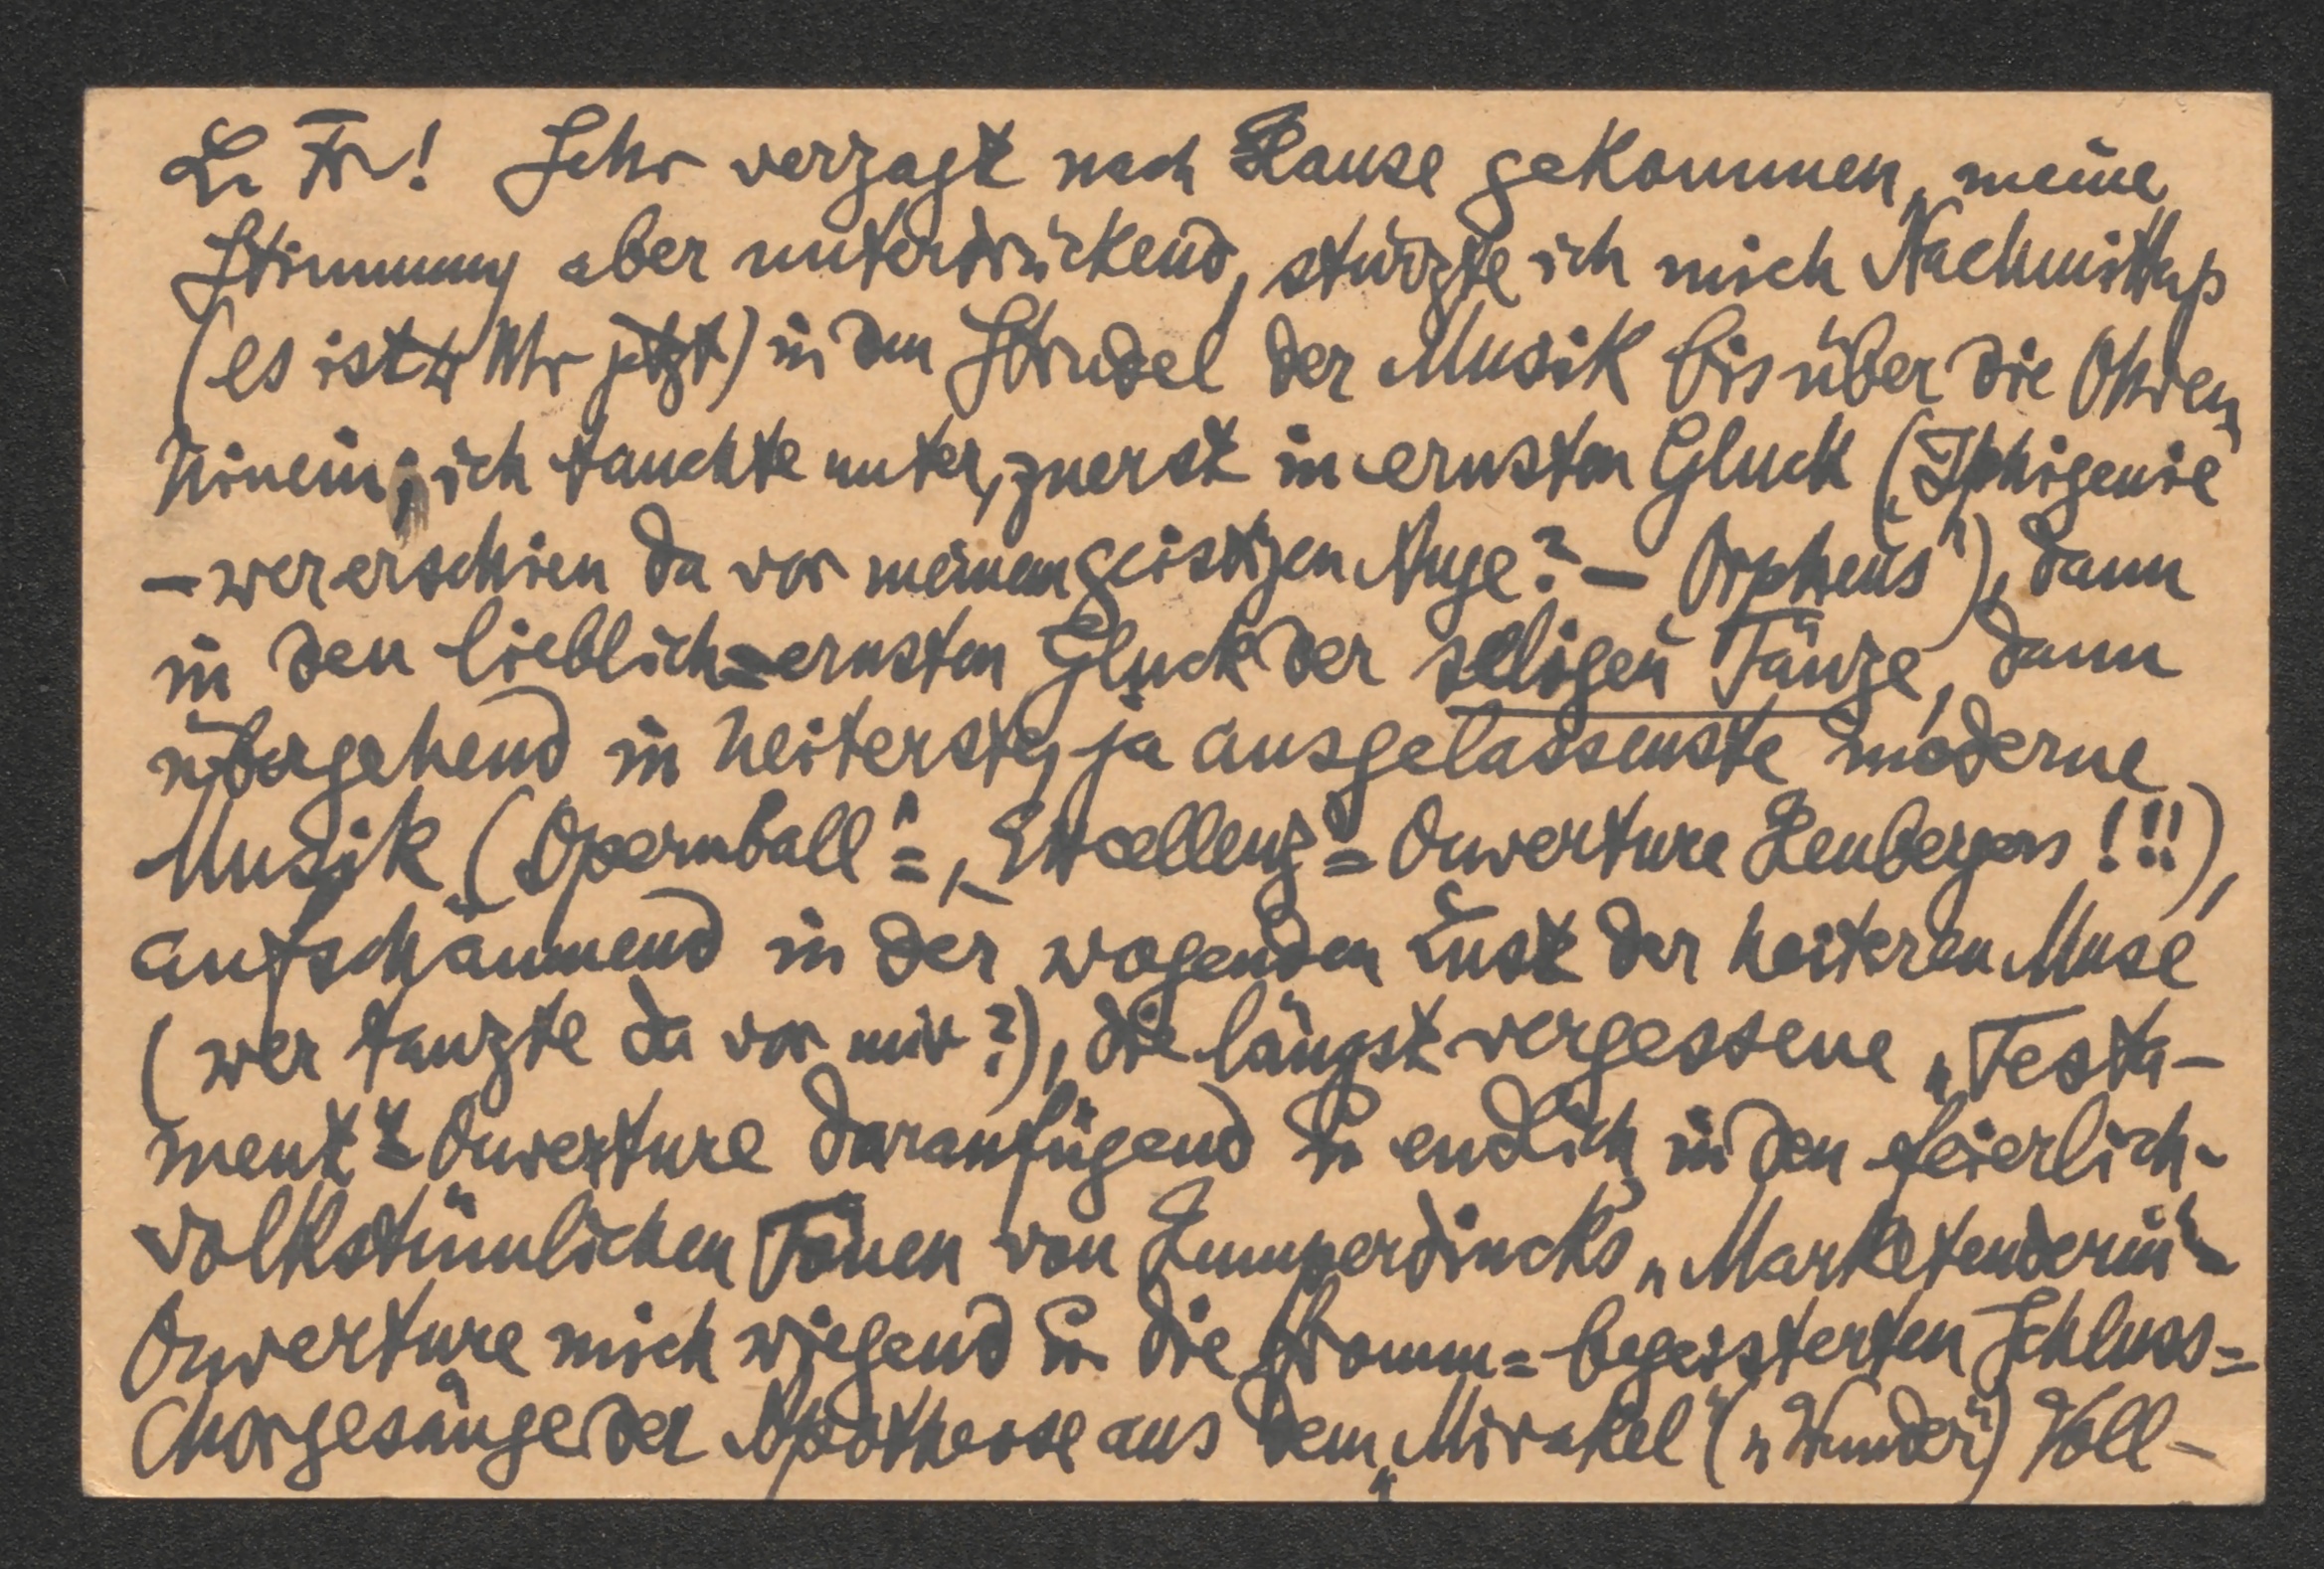 L. Fr! Sehr verzagt nach Hause gekommen, meine
Stimmung aber unterdrückend, stürzte ich mich Nachmittags
(es ist 4 Uhr jetzt) in den Strudel der Musik bis über die Ohren
hinein; ich tauchte unter, zuerst in ernsten Gluck („Iphigenie
– wer erschien da vor meinem geistigen Auge? – Orpheus“), dann
in den lieblich=ernsten Gluck der seligen Tänze, dann
übergehend in heiterste, ja ausgelassenste moderne
Musik („Opernball“=, „Excellenz“=Ouverture Heubergers!!!),
aufschäumend in der wogenden Lust der heiteren Muse
(wer tanzte da vor mir?), die längst vergessene „Testa-
ment“=Ouverture daranfügend u. endlich in den feierlich-
volkstümlichen Tönen von Humperdincks „Marketenderin“-
Ouverture mich wiegend u. die fromm=begeisterten Schluss=
Chorgesänge der Apotheose aus dem „Mirakel“ („Wunder“) Voll-